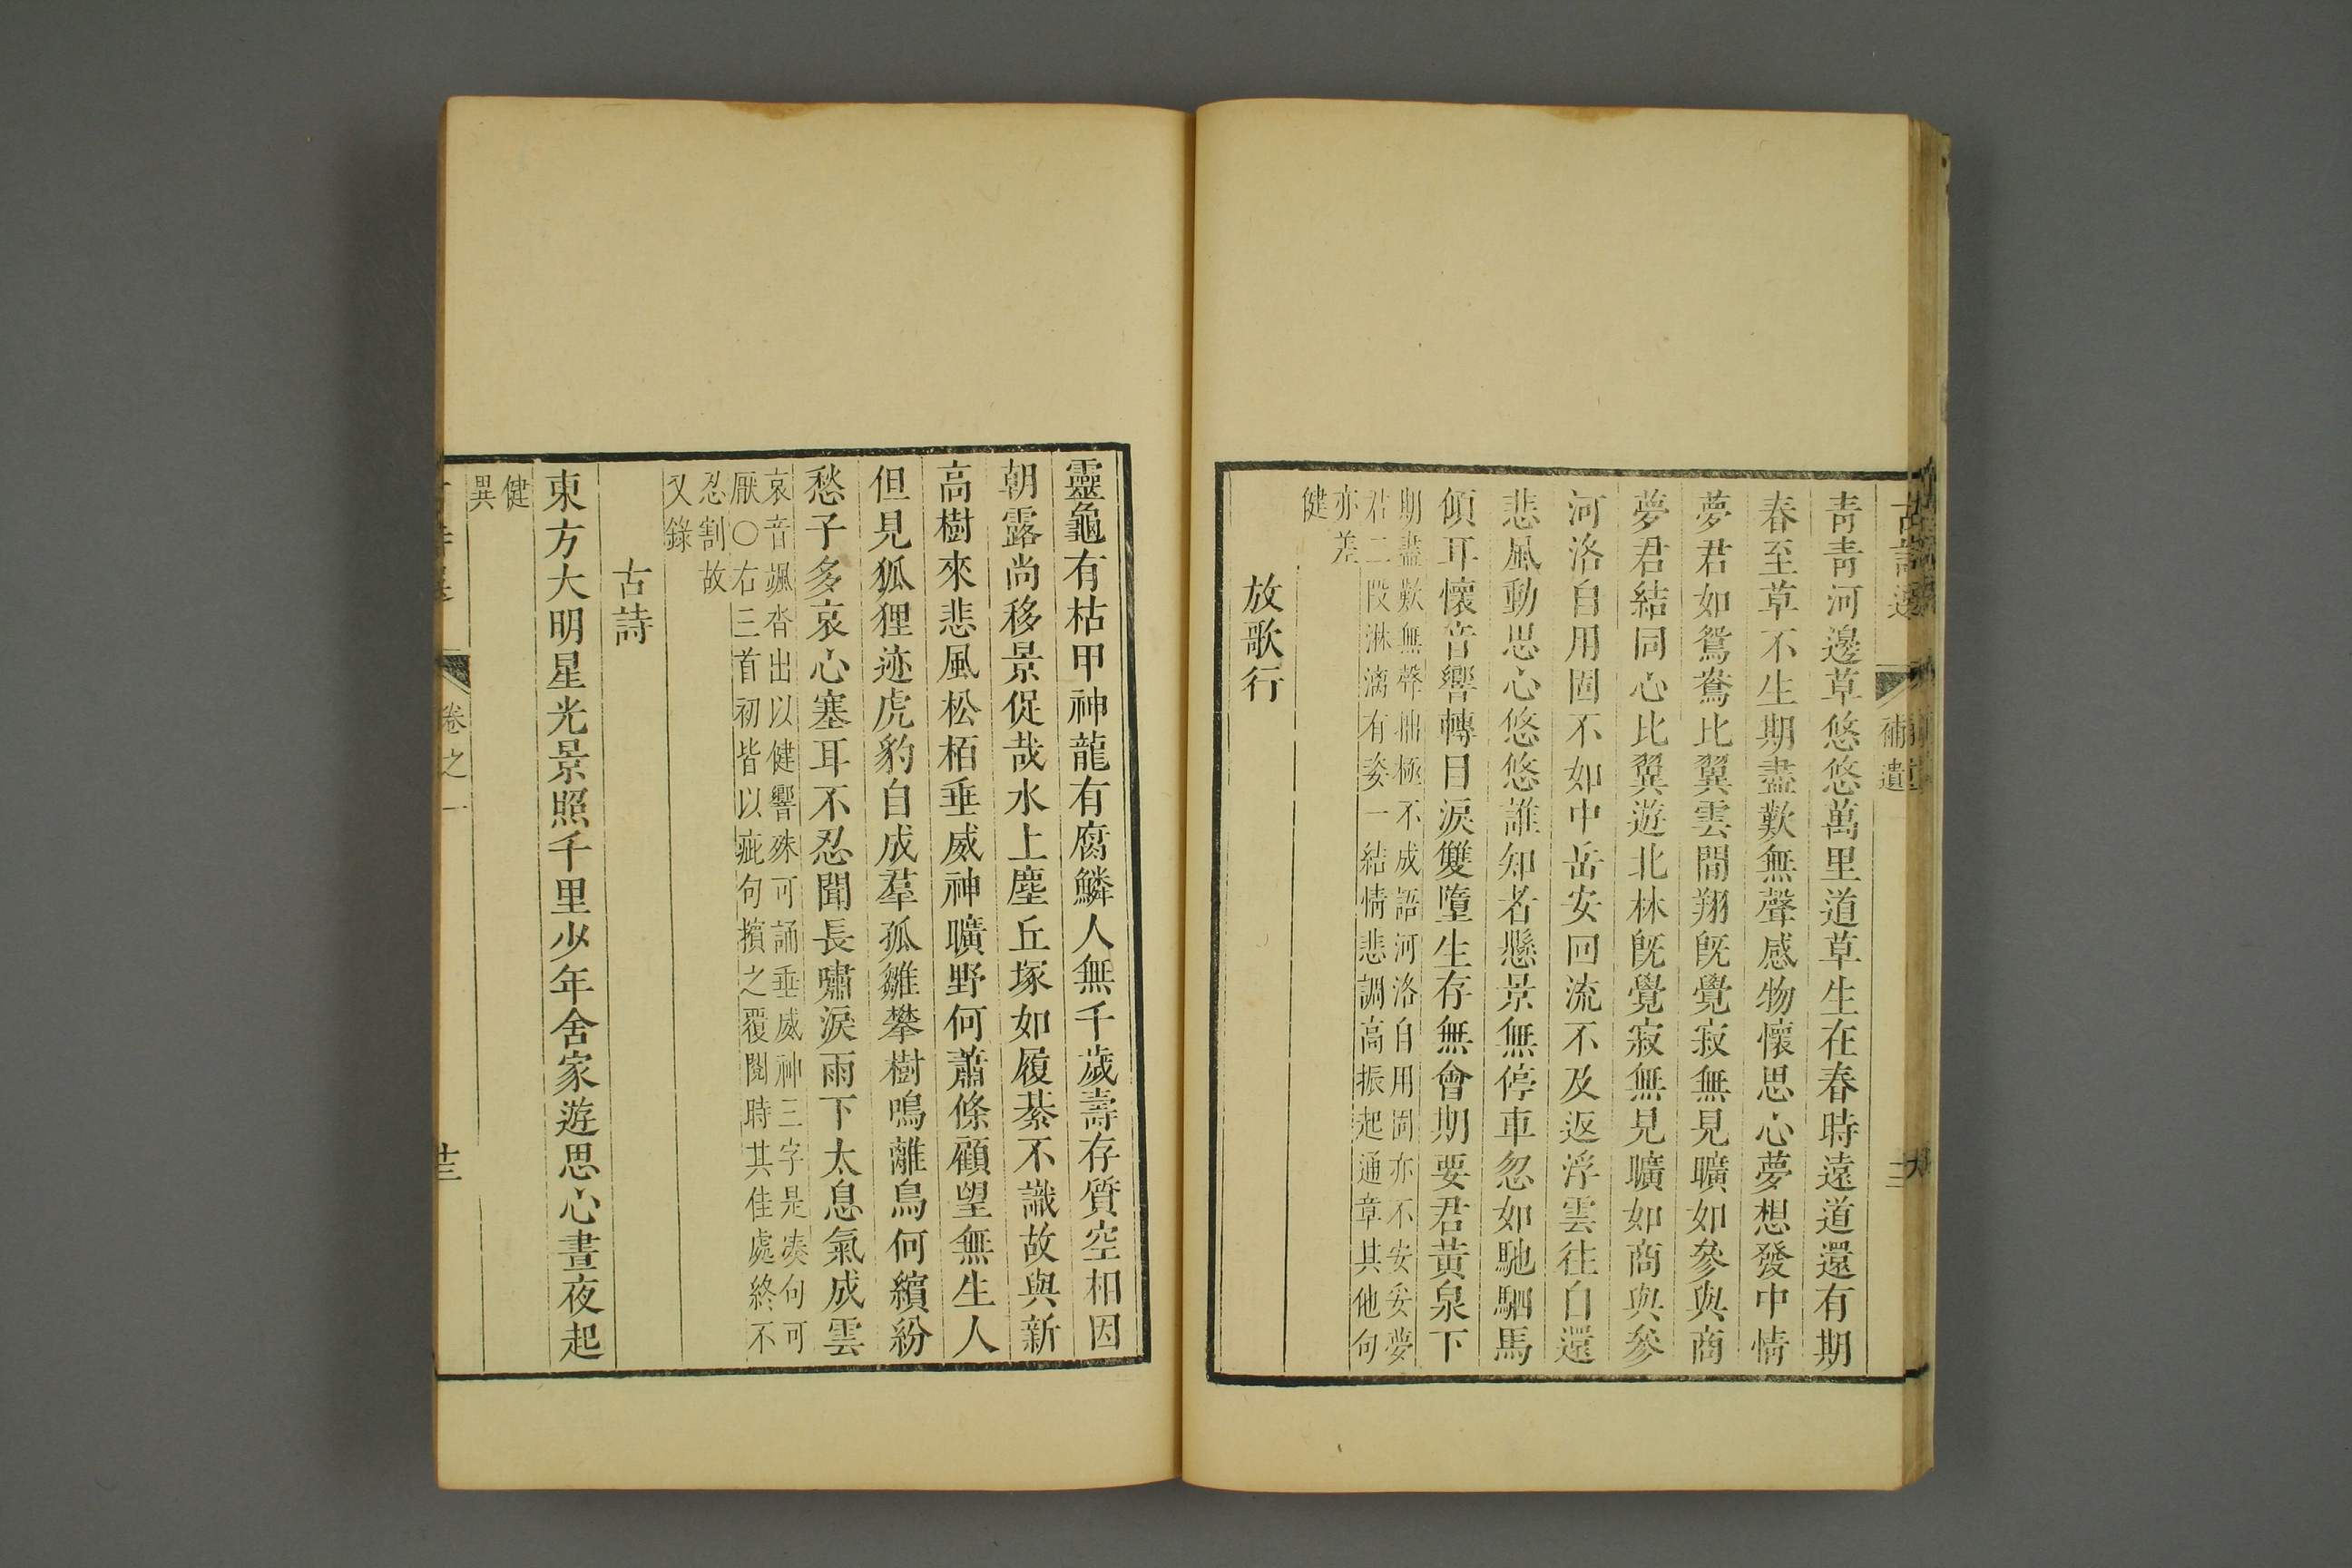 補遺
三
青青河邊草悠悠萬里道草生在春時遠道還有期
春至草不生期盡歎無聲感物懷思心夢想發中情
夢君如鴛鴦比翼雲間翔既覺寂無見曠如參與商
夢君結同心比翼遊北林既覺寂無見曠如商與參
河洛自用固不如中岳安回流不及返浮雲往自還
悲風動思心悠悠誰知者懸景無停車忽如馳駟馬
傾耳懷音響轉目淚雙墮生存無會期要君黃泉下
期盡歎無聲拙極不成語河洛自用固亦不安妥夢
君二段淋漓有姿一結情悲調高振起通章其他句
亦差
健
放歌行
靈龜有枯甲神龍有腐鱗人無千歲壽存質空相因
朝露尚移景促哉水上塵丘塚如履綦不識故與新
高樹來悲風松栢垂威神曠野何蕭條顧望無生人
但見狐狸迹虎豹自成羣孤雛攀樹鳴離鳥何繽紛
愁子多哀心塞耳不忍聞長嘯淚雨下太息氣成雲
哀音颯沓出以健響殊可誦垂威神三字是湊句可
厭○右三首初皆以疵句擯之覆閱時其佳處終不
忍割故
又錄
古詩
東方大明星光景照千里少年舍家遊思心晝夜起
健
異
卷之一